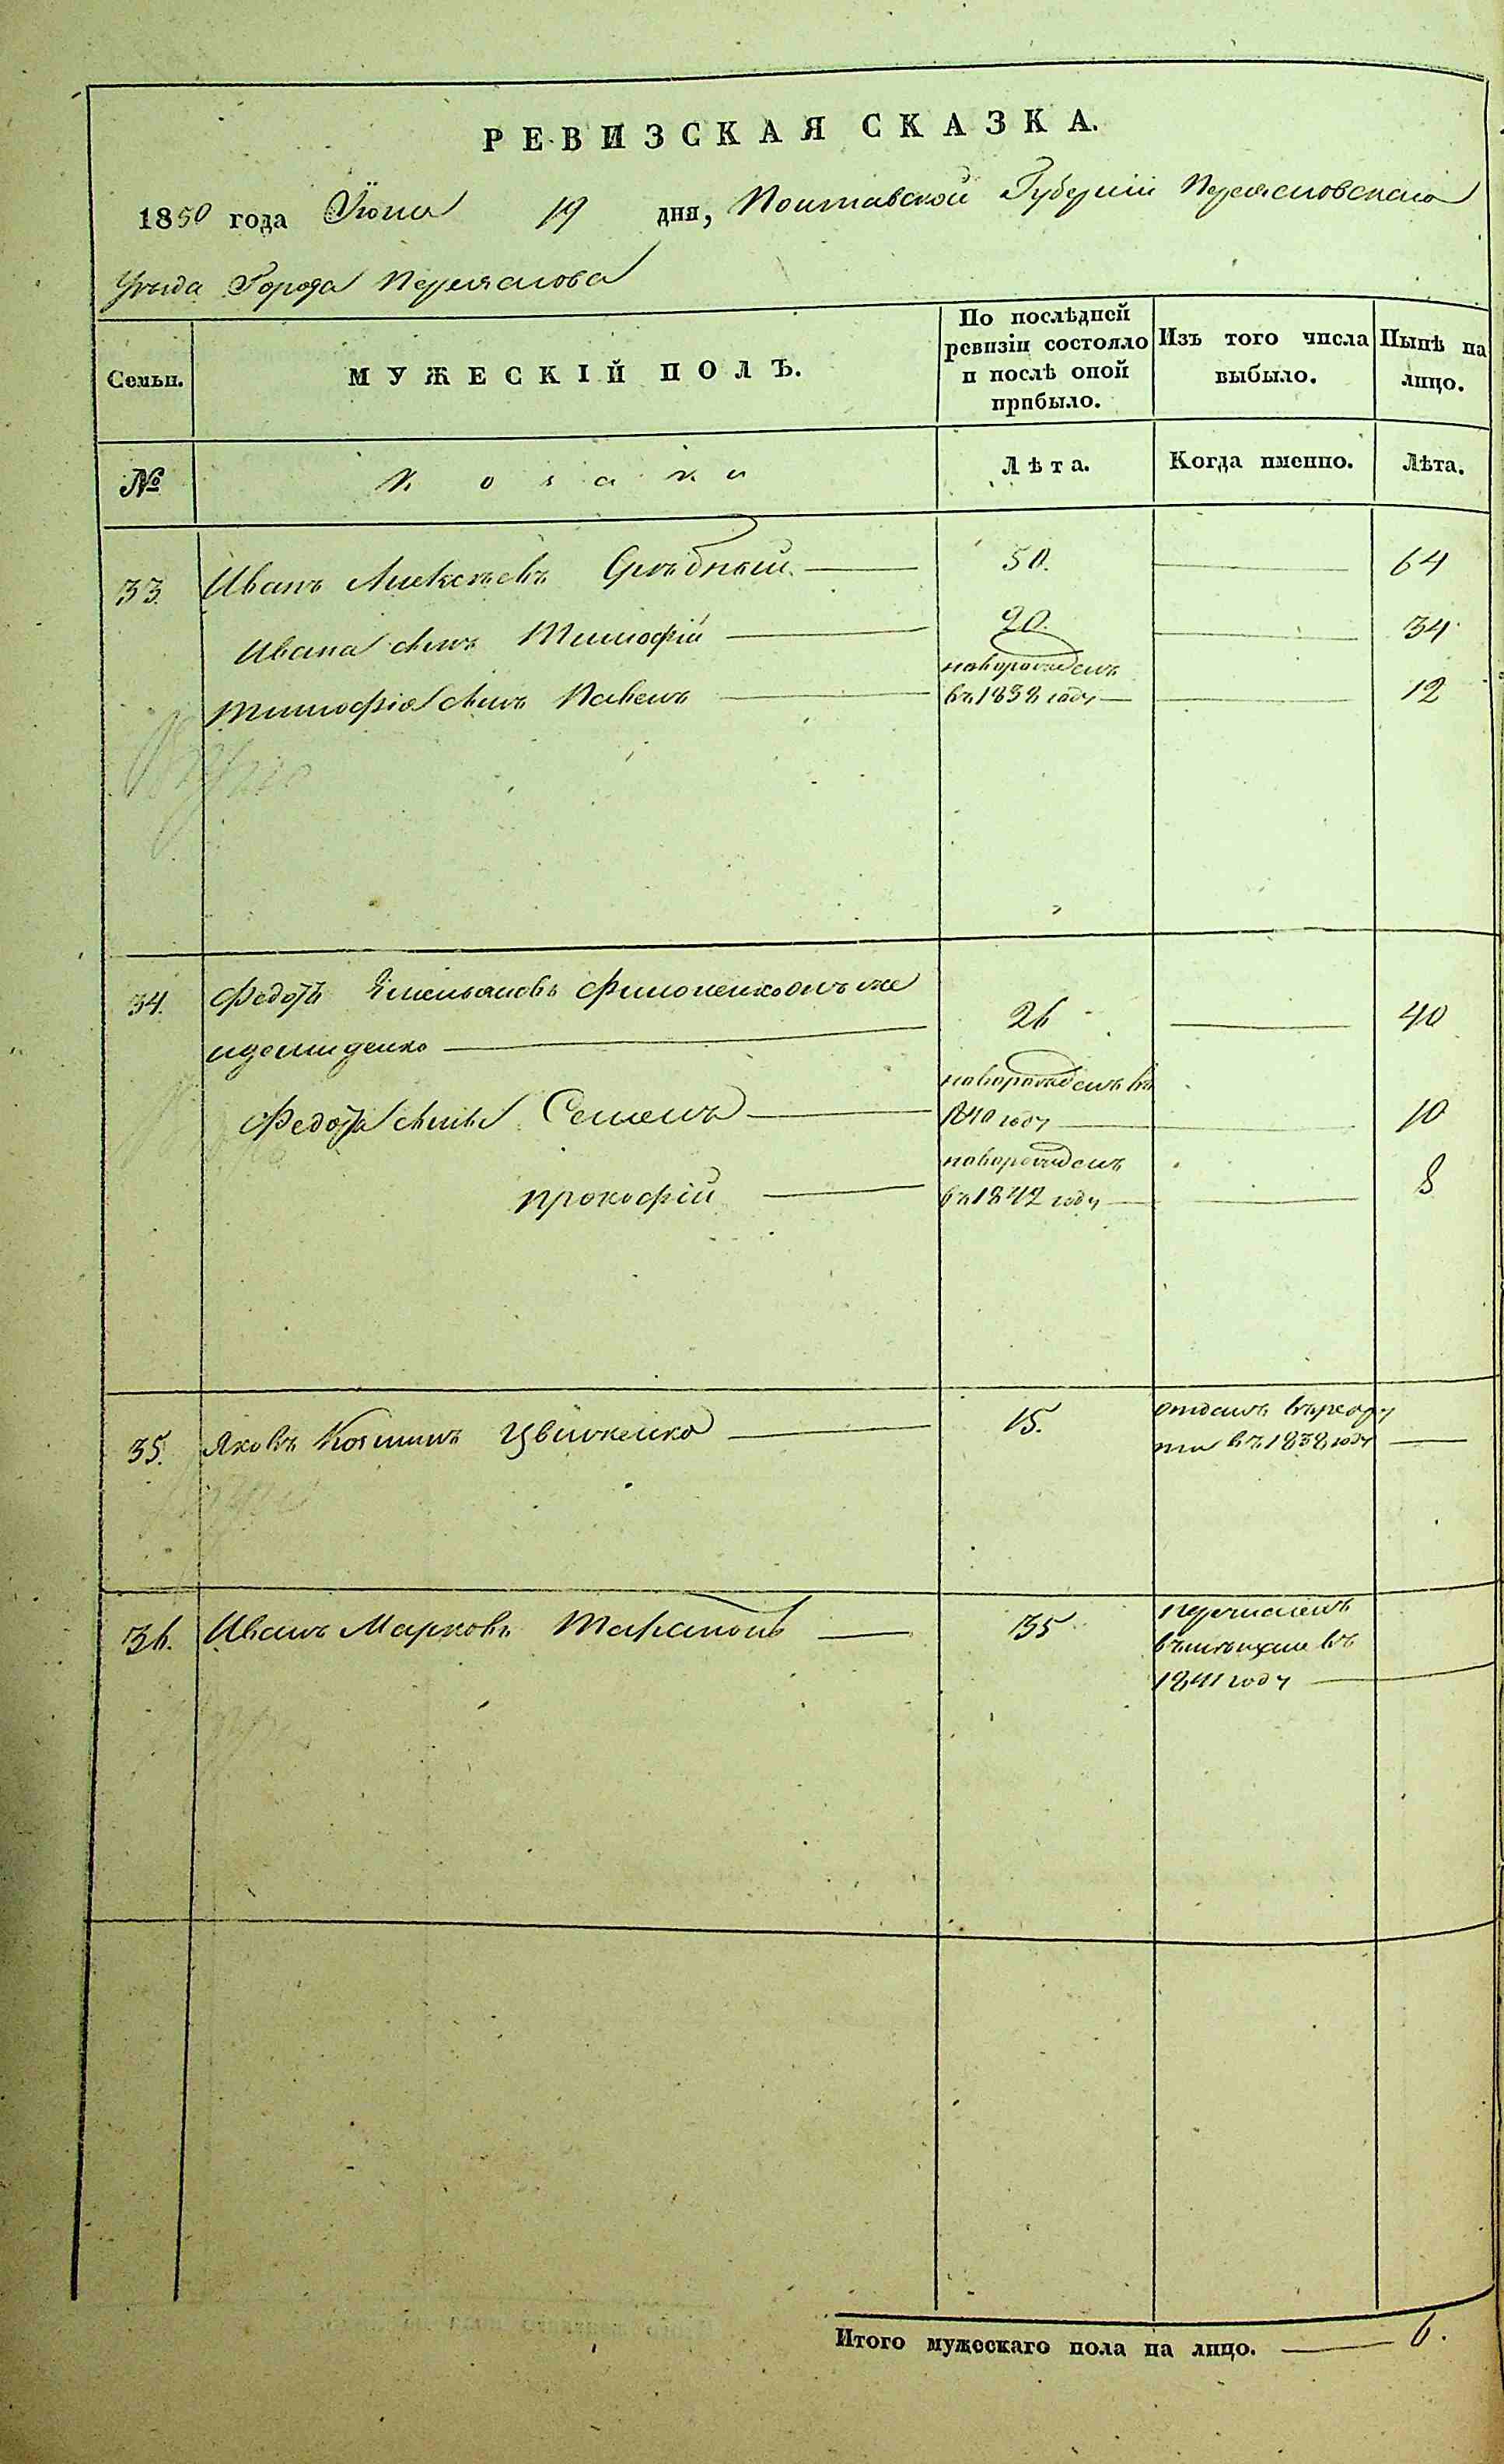 РЕВИЗСКАЯ СКАЗКА.
1850 года Іюня 19 дня, Полтавской Губерніи Переясловскаго
Уезда Города Переяслова
Семьи.
МУЖЕСКІЙ ПОЛЪ.
По послѣдней
ревизіи состояло
и послѣ оной
прибыло.
Изъ того числа
выбыло.
Нынѣ на
лицо.
№
Козаки
Лѣта.
Когда именно.
Лѣта.
33. Иванъ Алексѣевъ 50. 64
Ивана сынъ Тимофій 20. 34
новорожденъ
Тимофія сынъ Павелъ въ 1838 году 12
34. Федотъ Емельяновъ Филоненко онъ же
идемиденко 26 40
новорожденъ въ
Федота сыны Семенъ 1840 году 10
новорожденъ
Прокофій въ 1842 году 8
35. Яковъ Козминъ Цвиленко 15. отданъ въ рекру
ти въ 1838 году
36. Иванъ Марковъ 35 перечисленъ
въ мещане въ
1841 году
Итого мужескаго пола на лицо. 6.